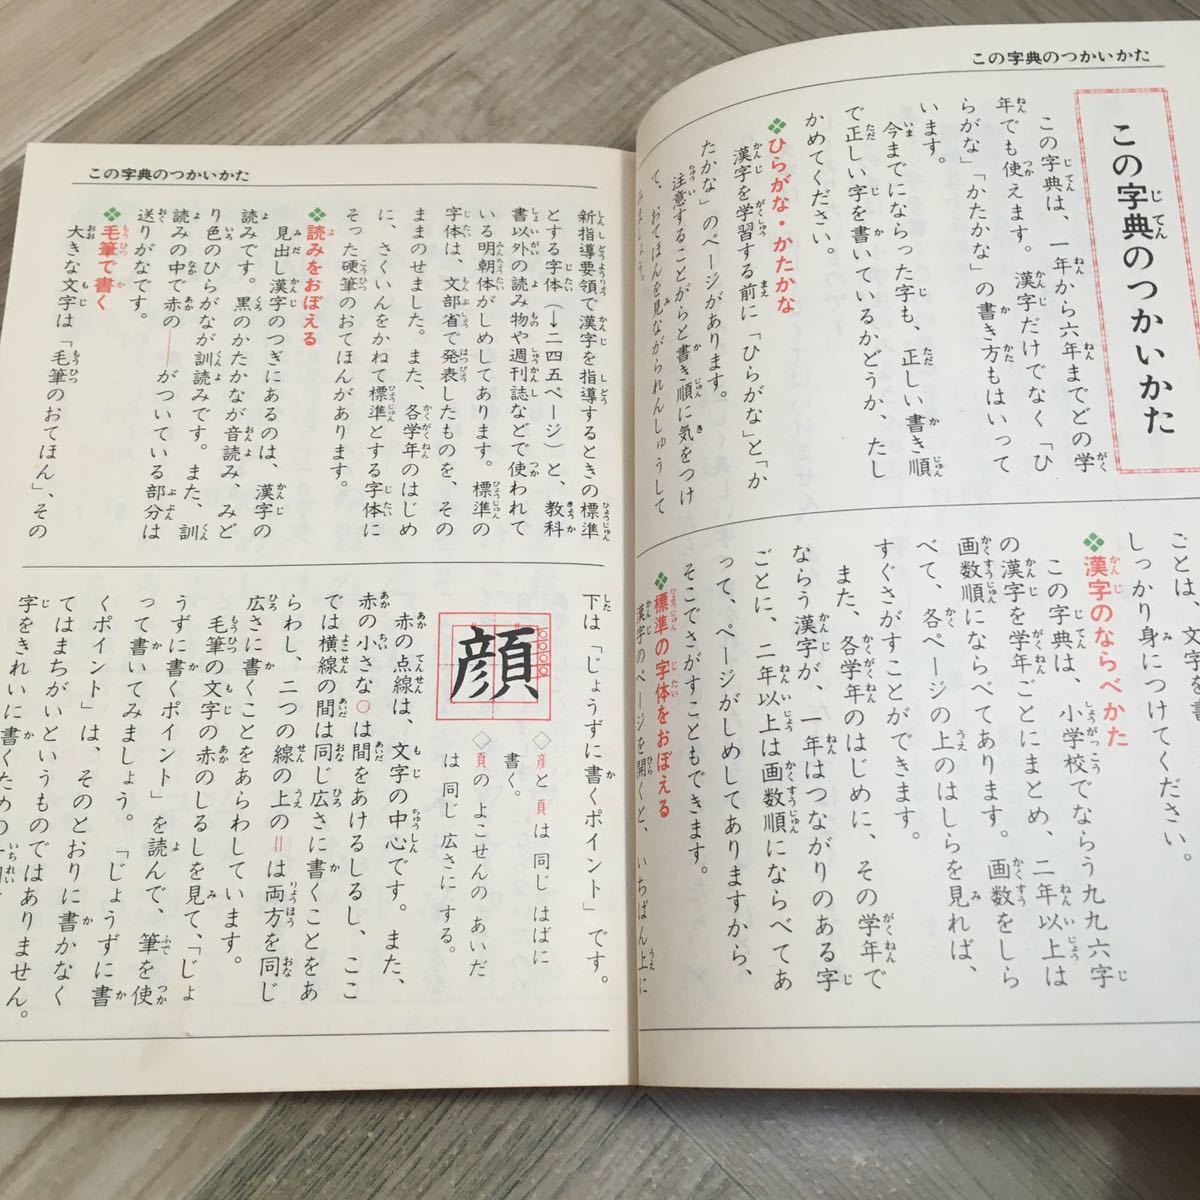 この字典のつかいかた
この字典のつかいかた
この字典は、一年から六年までどの学
年でも使えます。漢字だけでなく「ひ
らがな」「かたかな」の書き方もはいって
います。
今までにならった字も、正しい書き順
で正しい字を書いているかどうか、たし
かめてください。
ひらがな・かたかな
漢字を学習する前に「ひらがな」と「か
たかな」のページがあります。
注意することがらと書き順に気をつけ
て、おてほんを見ながられんしゅうして
ことは、文字を
しっかり身につけてください。
漢字のならべかた
この字典は、小学校でならう九九六字
の漢字を学年ごとにまとめ、二年以上は
画数順にならべてあります。画数をしら
べて、各ページの上のはしらを見れば、
すぐさがすことができます。
また、各学年のはじめに、その学年で
ならう漢字が、一年はつながりのある字
ごとに、二年以上は画数順にならべてあ
って、ページがしめしてありますから、
そこでさがすこともできます。
標準の字体をおぼえる
漢字のページを開くと、いちばん上に
この字典のつかいかた
新指導要領で漢字を指導するときの標準
とする字体(→二四五ページ)と、教科
書以外の読み物や週刊誌などで使われて
いる明朝体がしめしてあります。標準の
字体は、文部省で発表したものを、その
ままのせました。また、各学年のはじめ
に、さくいんをかねて標準とする字体に
そった硬筆のおてほんがあります。
読みをおぼえる
見出し漢字のつぎにあるのは、漢字の
読みです。黒のかたかなが音読み、みど
り色のひらがなが訓読みです。また、訓
読みの中で赤の――がついている部分は
送りがなです。
毛筆で書く
大きな文字は「毛筆のおてほん」、その
下は「じょうずに書くポイント」です。
顔
◇彦と頁は同じはばに
書く。
◇頁のよこせんのあいだ
は同じ広さにする。
赤の点線は、文字の中心です。また、
赤の小さな○は間をあけるしるし、ここ
では横線の間は同じ広さに書くことをあ
らわし、二つの線の上の=は両方を同じ
広さに書くことをあらわしています。
毛筆の文字の赤のしるしを見て、「じょ
うずに書くポイント」を読んで、筆を使
って書いてみましょう。「じょうずに書
くポイント」は、そのとおりに書かなく
てはまちがいというものではありません。
字をきれいに書くための